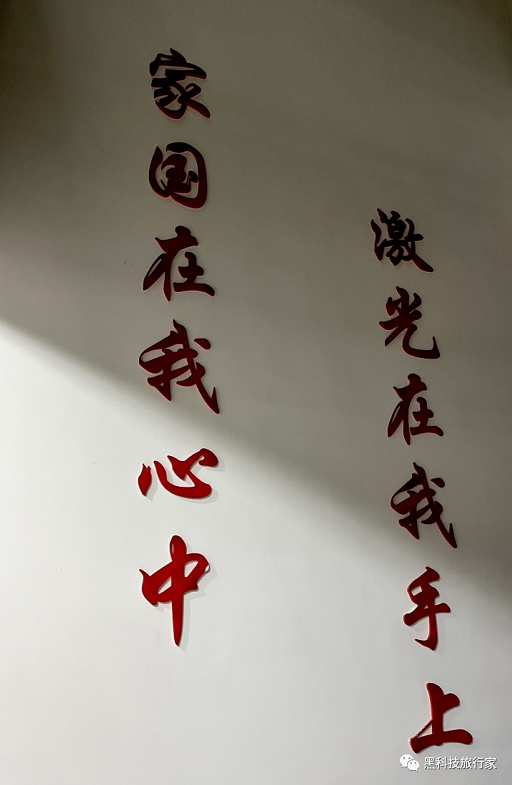 家国在我心中
激光在我手上
黑科技旅行家